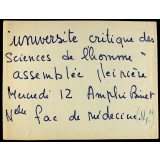 "université critique des
Sciences de l'homme"
assemblée plénière
Mercredi 12 Amphi Binet
Nelle fac de médecine